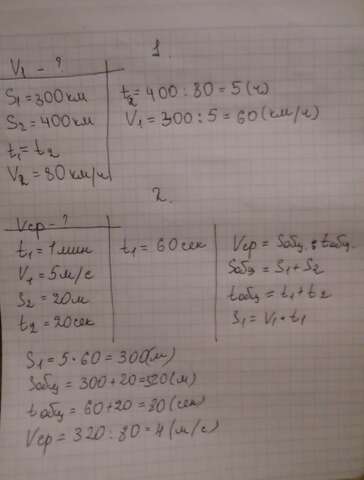 1.
V₁ - ?
S₁ = 300 км
S₂ = 400 км
t₁ = t₂
V₂ = 80 км/ч
t₂ = 400 : 80 = 5 (ч)
V₁ = 300 : 5 = 60 (км/ч)
2.
Vср - ?
t₁ = 1 мин
V₁ = 5 м/с
S₂ = 20 м
t₂ = 20 сек
t₁ = 60 сек
Vср = Sобщ : tобщ.
Sобщ = S₁ + S₂
tобщ = t₁ + t₂
S₁ = V₁ · t₁
S₁ = 5 · 60 = 300 (м)
Sобщ = 300 + 20 = 320 (м)
tобщ = 60 + 20 = 80 (сек)
Vср = 320 : 80 = 4 (м/с)